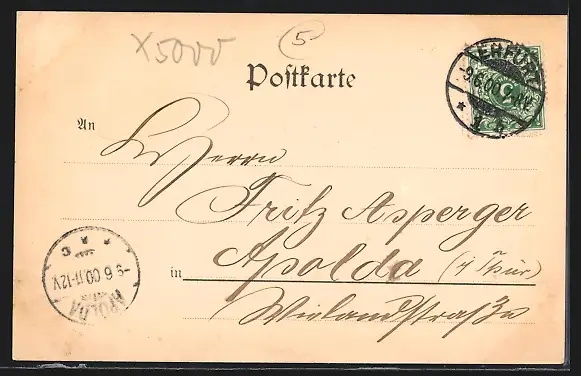 x5000
5
Postkarte
ERFURT
-9.6.00. 9-10V.
* 1 *
5
An Herrn
Fritz Asperger
in Apolda (i/ Thür)
Wielandstraße
APOLDA
-9.6.00.11-12V.
* * C